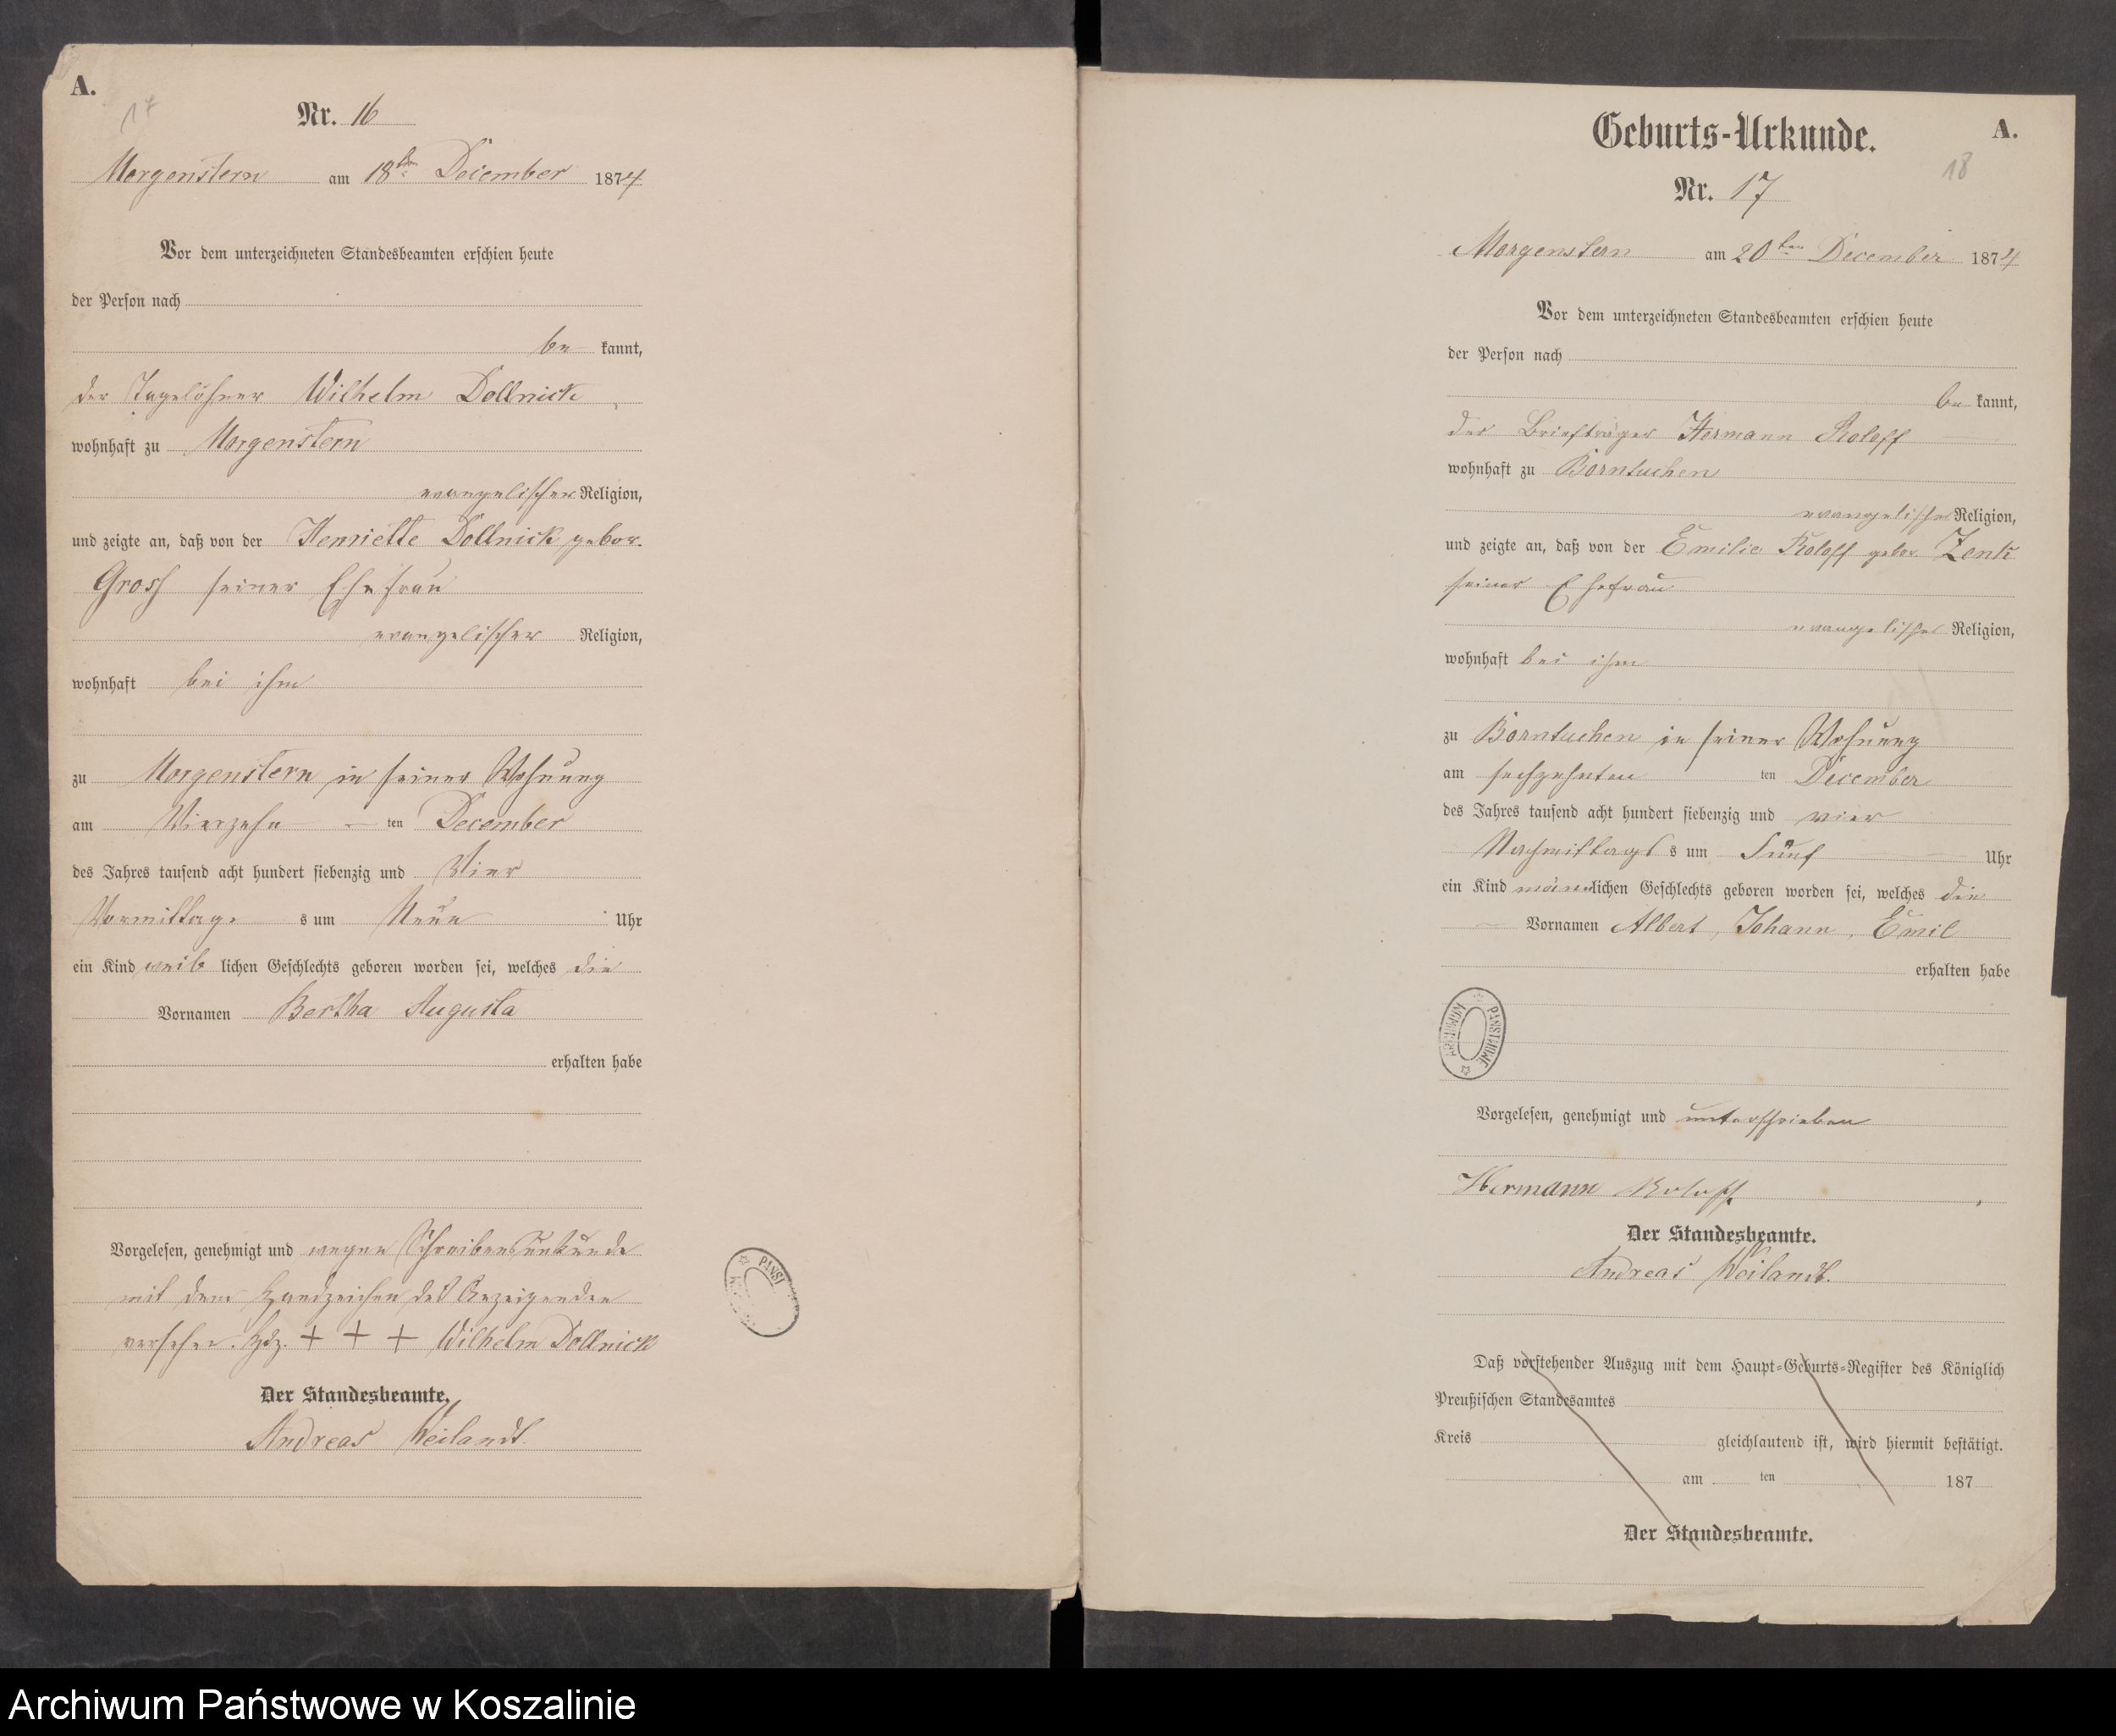 A.
17
Nr. 16
Morgenstern am 18ten December 1874
Vor dem unterzeichneten Standesbeamten erschien heute
der Person nach
be kannt,
der Tagelöhner Wilhelm Dollnick,
wohnhaft zu Morgenstern
evangelischer Religion,
und zeigte an, daß von der Henriette Dollnick gebor.
Gross seiner Ehefrau
evangelischer Religion,
wohnhaft bei ihm
zu Morgenstern in seiner Wohnung
am Vierzehn ten December
des Jahres tausend acht hundert siebenzig und Vier
Vormittags um Neun Uhr
ein Kind weib lichen Geschlechts geboren worden sei, welches die
Vornamen Bertha Augusta
erhalten habe
Vorgelesen, genehmigt und wegen Schreibensunkunde
mit dem Handzeichen des Anzeigenden
versehen. Hdz. + + + Wilhelm Dollnick
Der Standesbeamte.
Andreas Weilandt.
Geburts-Urkunde. A.
18
Nr. 17
Morgenstern am 20ten December 1874
Vor dem unterzeichneten Standesbeamten erschien heute
der Person nach
be kannt,
der Briefträger Hermann Roloff
wohnhaft zu Borntuchen
evangelischer Religion,
und zeigte an, daß von der Emilie Roloff gebor. Zenk
seiner Ehefrau
evangelischer Religion,
wohnhaft bei ihm
zu Borntuchen in seiner Wohnung
am sechzehnten ten December
des Jahres tausend acht hundert siebenzig und vier
Nachmittags s um Fünf Uhr
ein Kind männlichen Geschlechts geboren worden sei, welches die
Vornamen Albert, Johann, Emil
erhalten habe
ARCHIWUM PAŃSTWOWE
Vorgelesen, genehmigt und unterschrieben
Hermann Roloff
Der Standesbeamte.
Andreas Weilandt.
Daß vorstehender Auszug mit dem Haupt-Geburts-Register des Königlich
Preußischen Standesamtes
Kreis gleichlautend ist, wird hiermit bestätigt.
am ten 187
Der Standesbeamte.
Archiwum Państwowe w Koszalinie